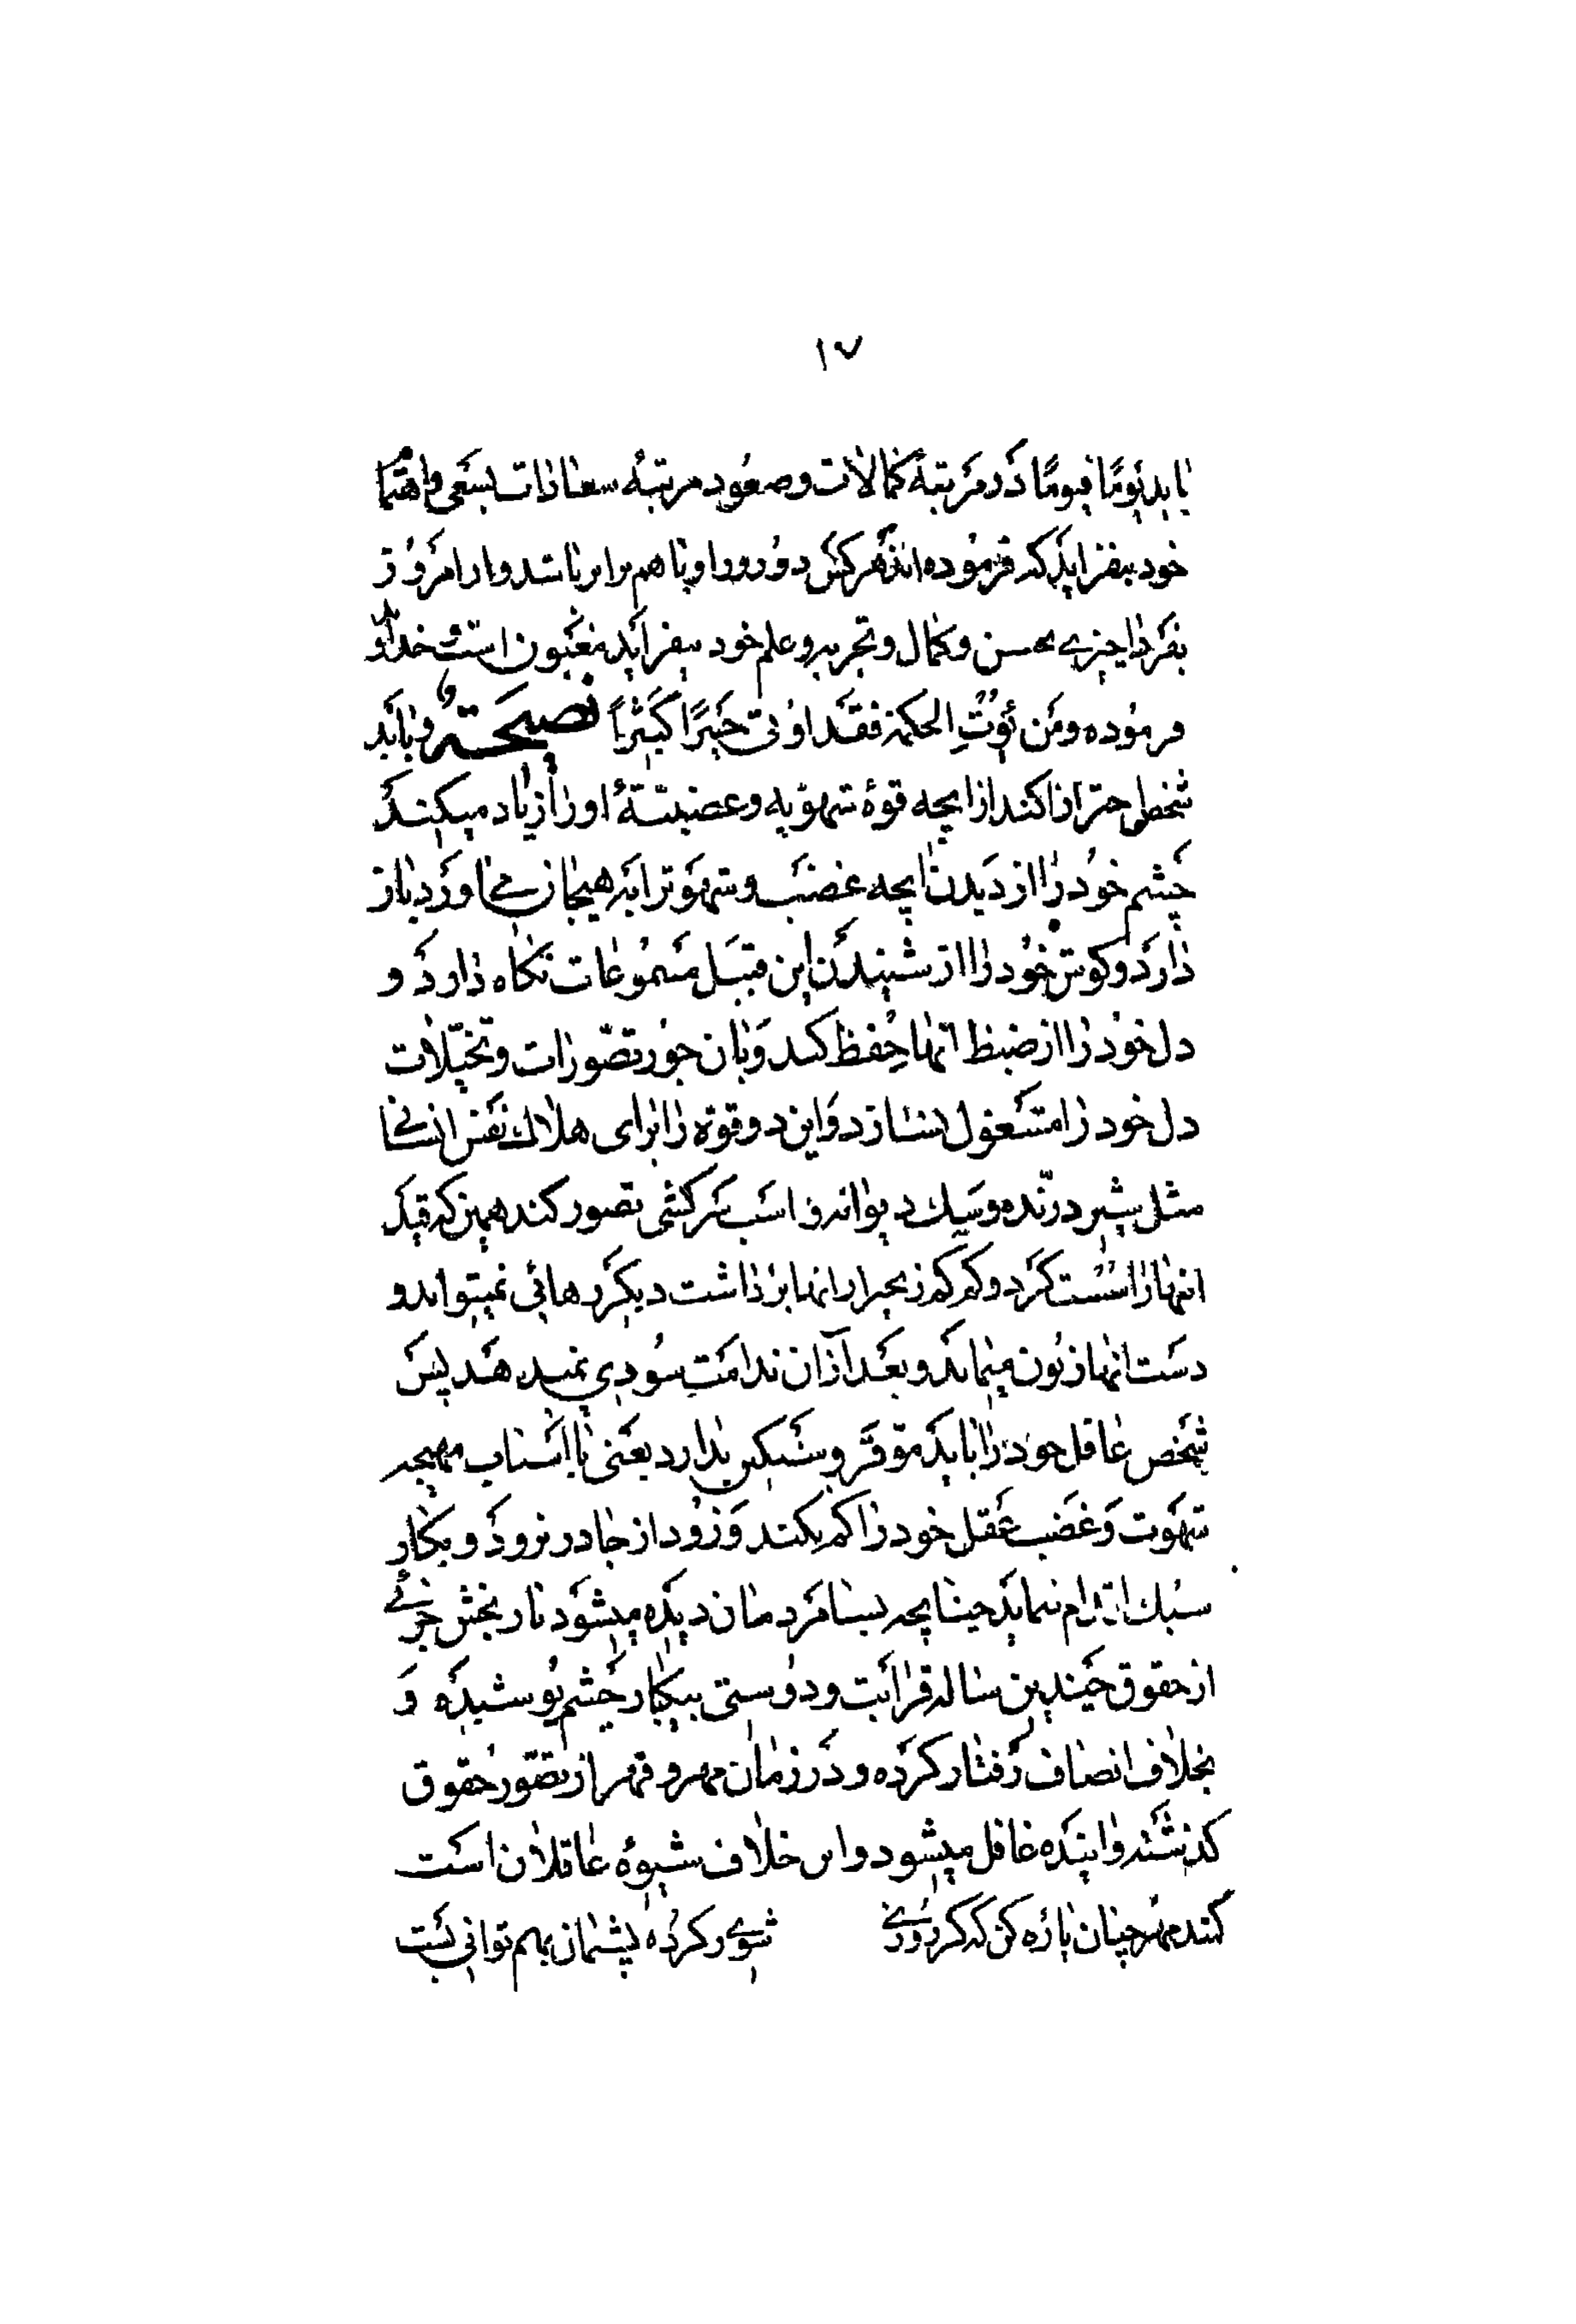 ۱۷
باید یَومًا فیومًا دَر مَرتبهٔ کمالات و صعُود مرتبهٔ سعادات بسَعی و اهتمام
خود بیفزاید که فرمُوده‌اند هر کسَ دو روز او با هم برابر باشد و از امرَوُز
بفَردا چیزے بحسن و کمال و تجربه و علم خود بیفزاید مغبون است خداوند
فرمُوده ومَن یُؤتَ الحکمة فقَد اوُتی خَیرًا کَثیراً نصیحَةٌ و باید
شخص احتراز کند از آنچه قوهٔ شهوّیه و غضبیّهٔ او را زیاد میکند
چَشم خوُد را از دَیدن آنچه غضَب و شهوَت را به هیجان مے‌اورَد باز
دارَد و گوش خوُد را از شنیدَن این قبَیل مسَموُعات نگاه دارَد و
دل خوُد را از ضبط انها حِفظ کند وَ بان جوُر تصّورات و تخیّلات
دل خود را مشَغول نسازد وَ این دو قوّه را برای هلاک نفَس انسانے
مثل شیر درّنده و سَگ دیوانه و اسَب سَرکشی تصور کند همین که قیَد
انها را سُست کَرد و کم کم زنجیر از انها برداشت دیگر رهائی نمیتواند و
دسَت انها زبُون میماند و بعَد از آن ندامَت سُودی نمیدهَد پسَ
شخَص عاقل خود را بایَد موّقرَ و سَنگین بدارد یعَنی با اسَباب مهیجه
شهَوت وَ غضَب عَقل خود را گم نکند وَ زوُد از جا در نروَد و بکار
سبُک اقدام ننماید چنانچه بسا مرَدمان دیده میشوَد با رنجش جزئے
از حقوق چَندین ساله قرابَت و دوُستی بیکبار چَشم پوُشیده وَ
بخلاف انصاف رَفتار کَرده و دَر زمان مهر و قهر از تصّور حقوق
گذشَته و اینَده غافل میشود و این خلاف شیوهٔ عاقلان اسَت
کمند مهر چنان پاره کن که گر روزے شوے ز کرده پشیمان بهم توانی بَست